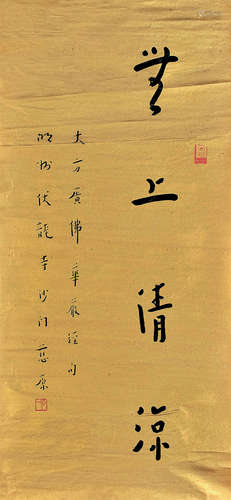 無上清涼
大方广佛華嚴經句
明州伏龍寺沙門慧原